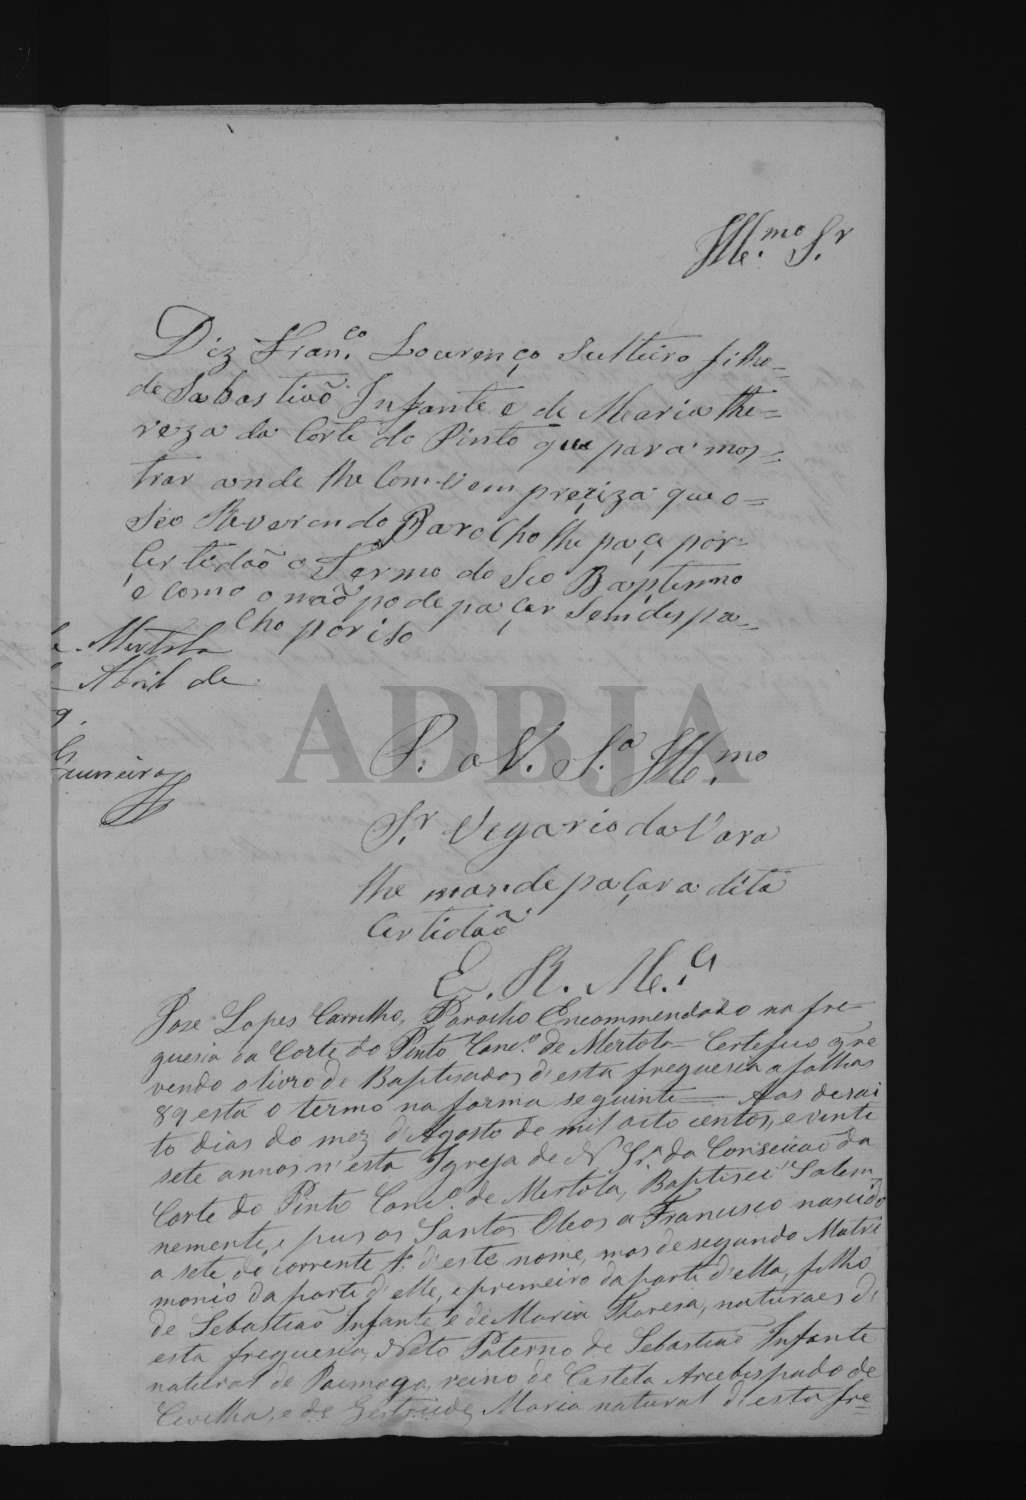 Ill.mo S.r
Diz Fran.co Lourenço Sulteiro filho=
de Sabastiaõ Infante e de Maria the=
reza da Corte do Pinto que para mos=
trar aonde lhe Comvem preçiza que o=
Seo Reverendo Parocho lhe paça por=
Çertidaõ o Termo do Seo Baptismo
e como o naõ pode paçar sem despa=
cho por iso
Mertola
Abril de
9.
Guerreiro
P. a V. S.a Ill.mo
S.r Vegario da Vara
lhe mande paçar a dita
Certidaõ
E. R. M.ce
Jose Lopes Carrilho, Parocho Encommendado na fre-
guesia da Corte do Pinto Conc.o de Mertola - Certefico q re
vendo o livro de Baptisados d'esta freguesia a folhas
89 está o termo na forma seguinte — Aos desoi
to dias do mez d'Agosto de mil oito centos, e vinte
sete annos n'esta Igreja de N Sr.a da Conseicaõ da
Corte do Pinto Conc.o de Mertola, Baptisei Solem-
nemente, e pus os Santos Oleos a Francisco nascido
a sete do corrente 1.o d'este nome, mas de segundo Matri
monio da parte d'elle, e premeiro da parte d'ella, filho
de Sebastiaõ Infante, e de Maria Theresa, naturaes d'
esta freguesia, Neto Paterno de Sebastiaõ Infante
natural de Paimogo, reino de Castela Arcebispado de
Cevilha, e de Gertrudes Maria natural d'esta fre=
ADBJA